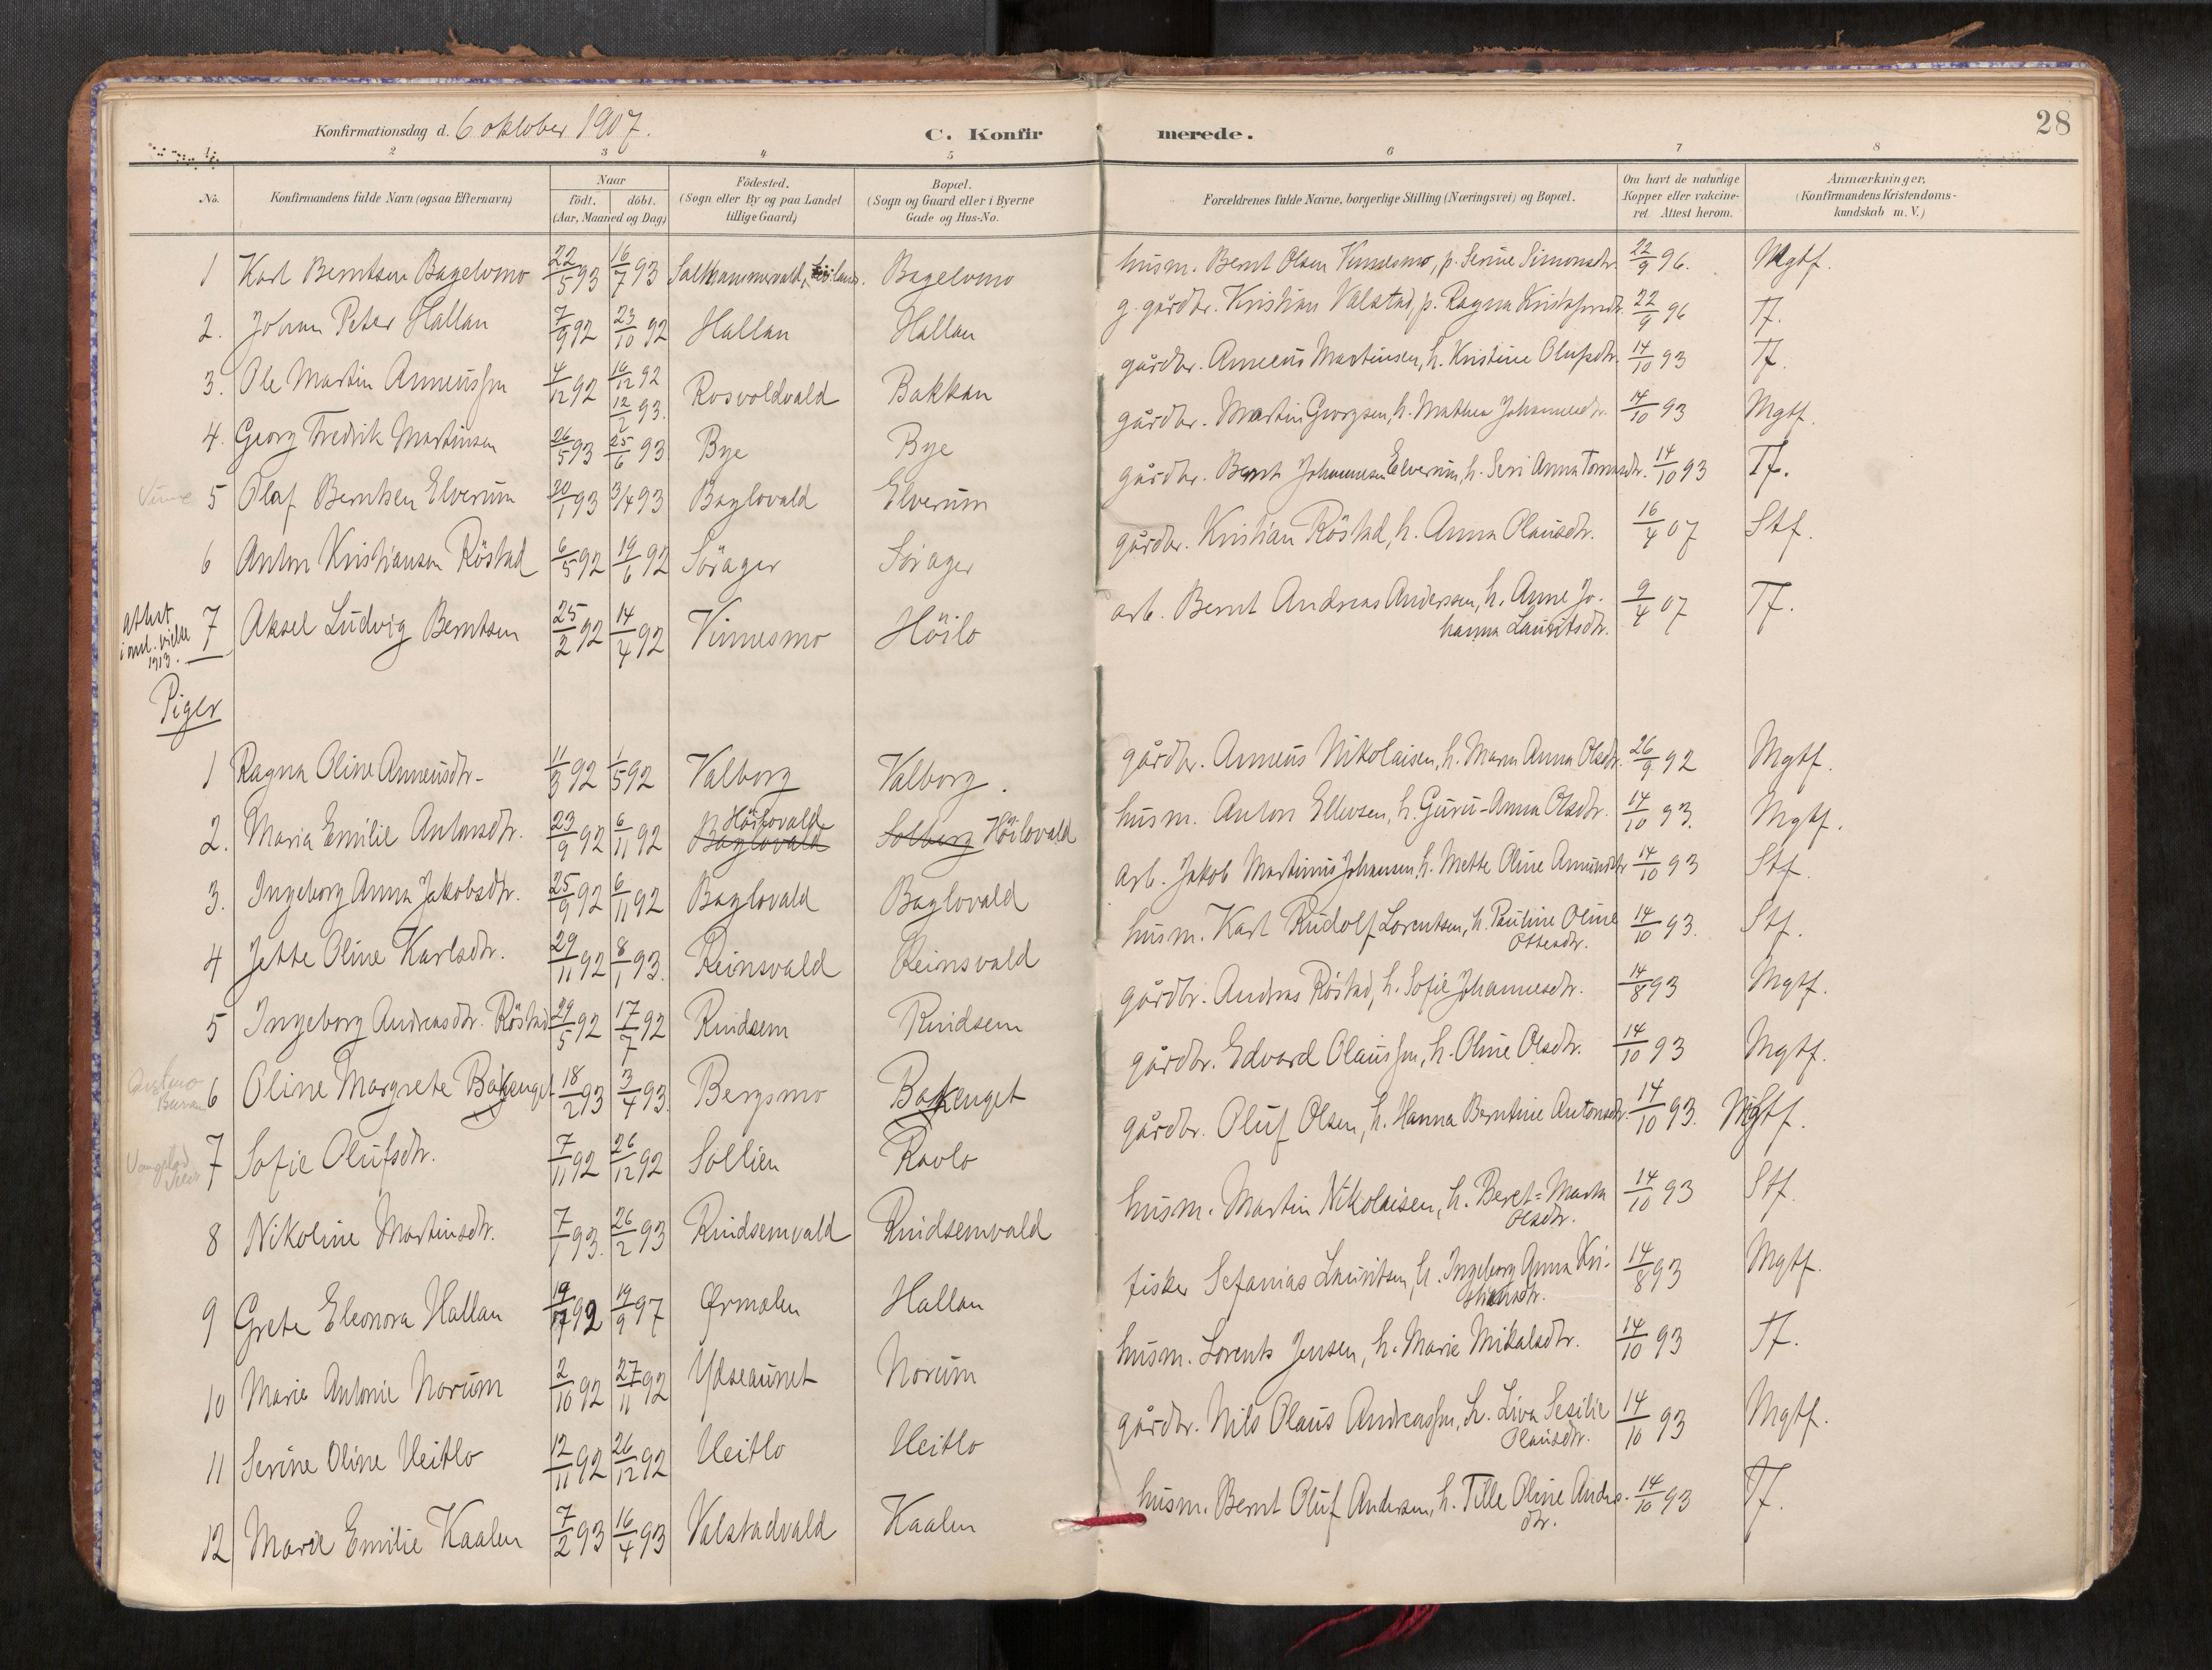 Konfirmationsdag d. 6 oktober 1907.
C. Konfirmerede.
28
1. 2 3 4 5 6 7 8
No.
Konfirmandens fulde Navn (ogsaa Efternavn)
Naar
født. døbt.
(Aar, Maaned og Dag)
Fødested.
(Sogn eller By og paa Landet
tillige Gaard)
Bopæl.
(Sogn og Gaard eller i Byerne
Gade og Hus-No.
Forældrenes fulde Navne, borgerlige Stilling (Næringsvei) og Bopæl.
Om havt de naturlige
Kopper eller vakcine-
ret. Attest herom.
Anmærkninger,
(Konfirmandens Kristendoms-
kundskab m. V.)
1 Karl Berntsen Bagelomo 22/5 93 16/7 93 Bagelomo husm. Bernt Olsen Vinnesmo, p. Serine Simonsdtr. 22/9 96. Mgtf.
2. Johan Peter Hallan 7/9 92 23/10 92 Hallan Hallan g. gårdbr. Kristian Valstad, p. Ragna Kristofersdtr. 22/9 96 Tf.
3. Ole Martin Anneussen 4/12 92 16/12 92 12/2 93. Rosvoldvald Bakkan gårdbr. Anneus Martinsen, h. Kristine Olufsdtr. 14/10 93 Tf.
4. Georg Fredrik Martinsen 26/5 93 25/6 93 Bye Bye gårdbr. Martin Georgsen, h. Mathea Johannesdtr. 14/10 93 Mgtf.
5 Olaf Berntsen Elverum 20/1 93 3/4 93 Baglovald Elverum gårdbr. Bernt Johannesen Elverum, h. Seri Anna Tomasdtr. 14/10 93 Tf.
6 Anton Kristiansen Röstad 6/5 92 19/6 92 Söräger Söräger gårdbr. Kristian Röstad, h. Anna Olausdtr. 16/4 07 Stf.
attest
1913.
7 Aksel Ludvig Berntsen 25/2 92 14/4 92 Vinnesmo Höilo arb. Bernt Andreas Anderssen, h. Anne Jo-
hanna Lauritsdtr. 9/4 07 Tf.
Piger
1 Ragna Oline Anneusdtr- 11/3 92 1/5 92 Valborg Valborg. gårdbr. Anneus Nikolaisen, h. Maren Anna Olsdtr. 26/9 92 Mgtf.
2. Maria Emilie Antonsdtr. 23/9 92 6/11 92 Höilovald Baglovald Solberg Höilovald husm. Anton Ellevsen, h. Guru-Anna Olsdtr. 14/10 93. Mgtf.
3. Ingeborg Anna Jakobsdtr. 25/9 92 6/11 92 Baglovald Baglovald arb. Jakob Martinus Johansen, h. Mette Oline Amundsdtr 14/10 93 Stf.
4 Jette Oline Karlsdtr. 29/11 92 8/1 93. Reinsvald Reinsvald husm. Karl Rudolf Lorentsen, h. Pauline Oline
Ottesdtr. 14/10 93. Stf.
5 Ingeborg Andreasdtr. Röstad 29/5 92 17/7 92 Rindsem Rindsem gårdbr. Andreas Röstad, h. Sofie Johannesdtr. 14/8 93 Mgtf.
6 Oline Margrete Bakenget 18/2 93 3/4 93. Bergsmo Bakenget gårdbr. Edvard Olaussen, h. Oline Olsdtr. 14/10 93 Mgtf.
7 Sofie Olufsdtr. 7/11 92 26/12 92 Sollien Ravlo gårdbr. Oluf Olsen, h. Hanna Berntine Antonsdtr. 14/10 93. Mgtf.
8 Nikoline Martinsdtr. 7/1 93. 26/2 93 Rindsemvald Rindsemvald husm. Martin Nikolaisen, h. Beret-Marta
Olsdtr. 14/10 93 Stf.
9 Grete Eleonora Hallan 19/7 92 19/9 97 Ørmelen Hallan fisker Sefanias Lauritsen, h. Ingeborg Anna Kri-
stiansdtr. 14/8 93 Mgtf.
10 Marie Antonie Norum 2/10 92 27/11 92 Ydseaunet Norum husm. Lorents Jensen, h. Marie Mikalsdtr. 14/10 93 Tf.
11 Serine Oline Veitlo 12/11 92 26/12 92 Veitlo Veitlo gårdbr. Nils Olaus Andreassen, h. Liva Sesilie
Olausdtr. 14/10 93 Mgtf.
12 Marie Emilie Kaalen 7/2 93 16/4 93 Valstadvald Kaalen husm. Bernt Oluf Andersen, h. Tille Oline Anders-
dtr. 14/10 93 Tf.